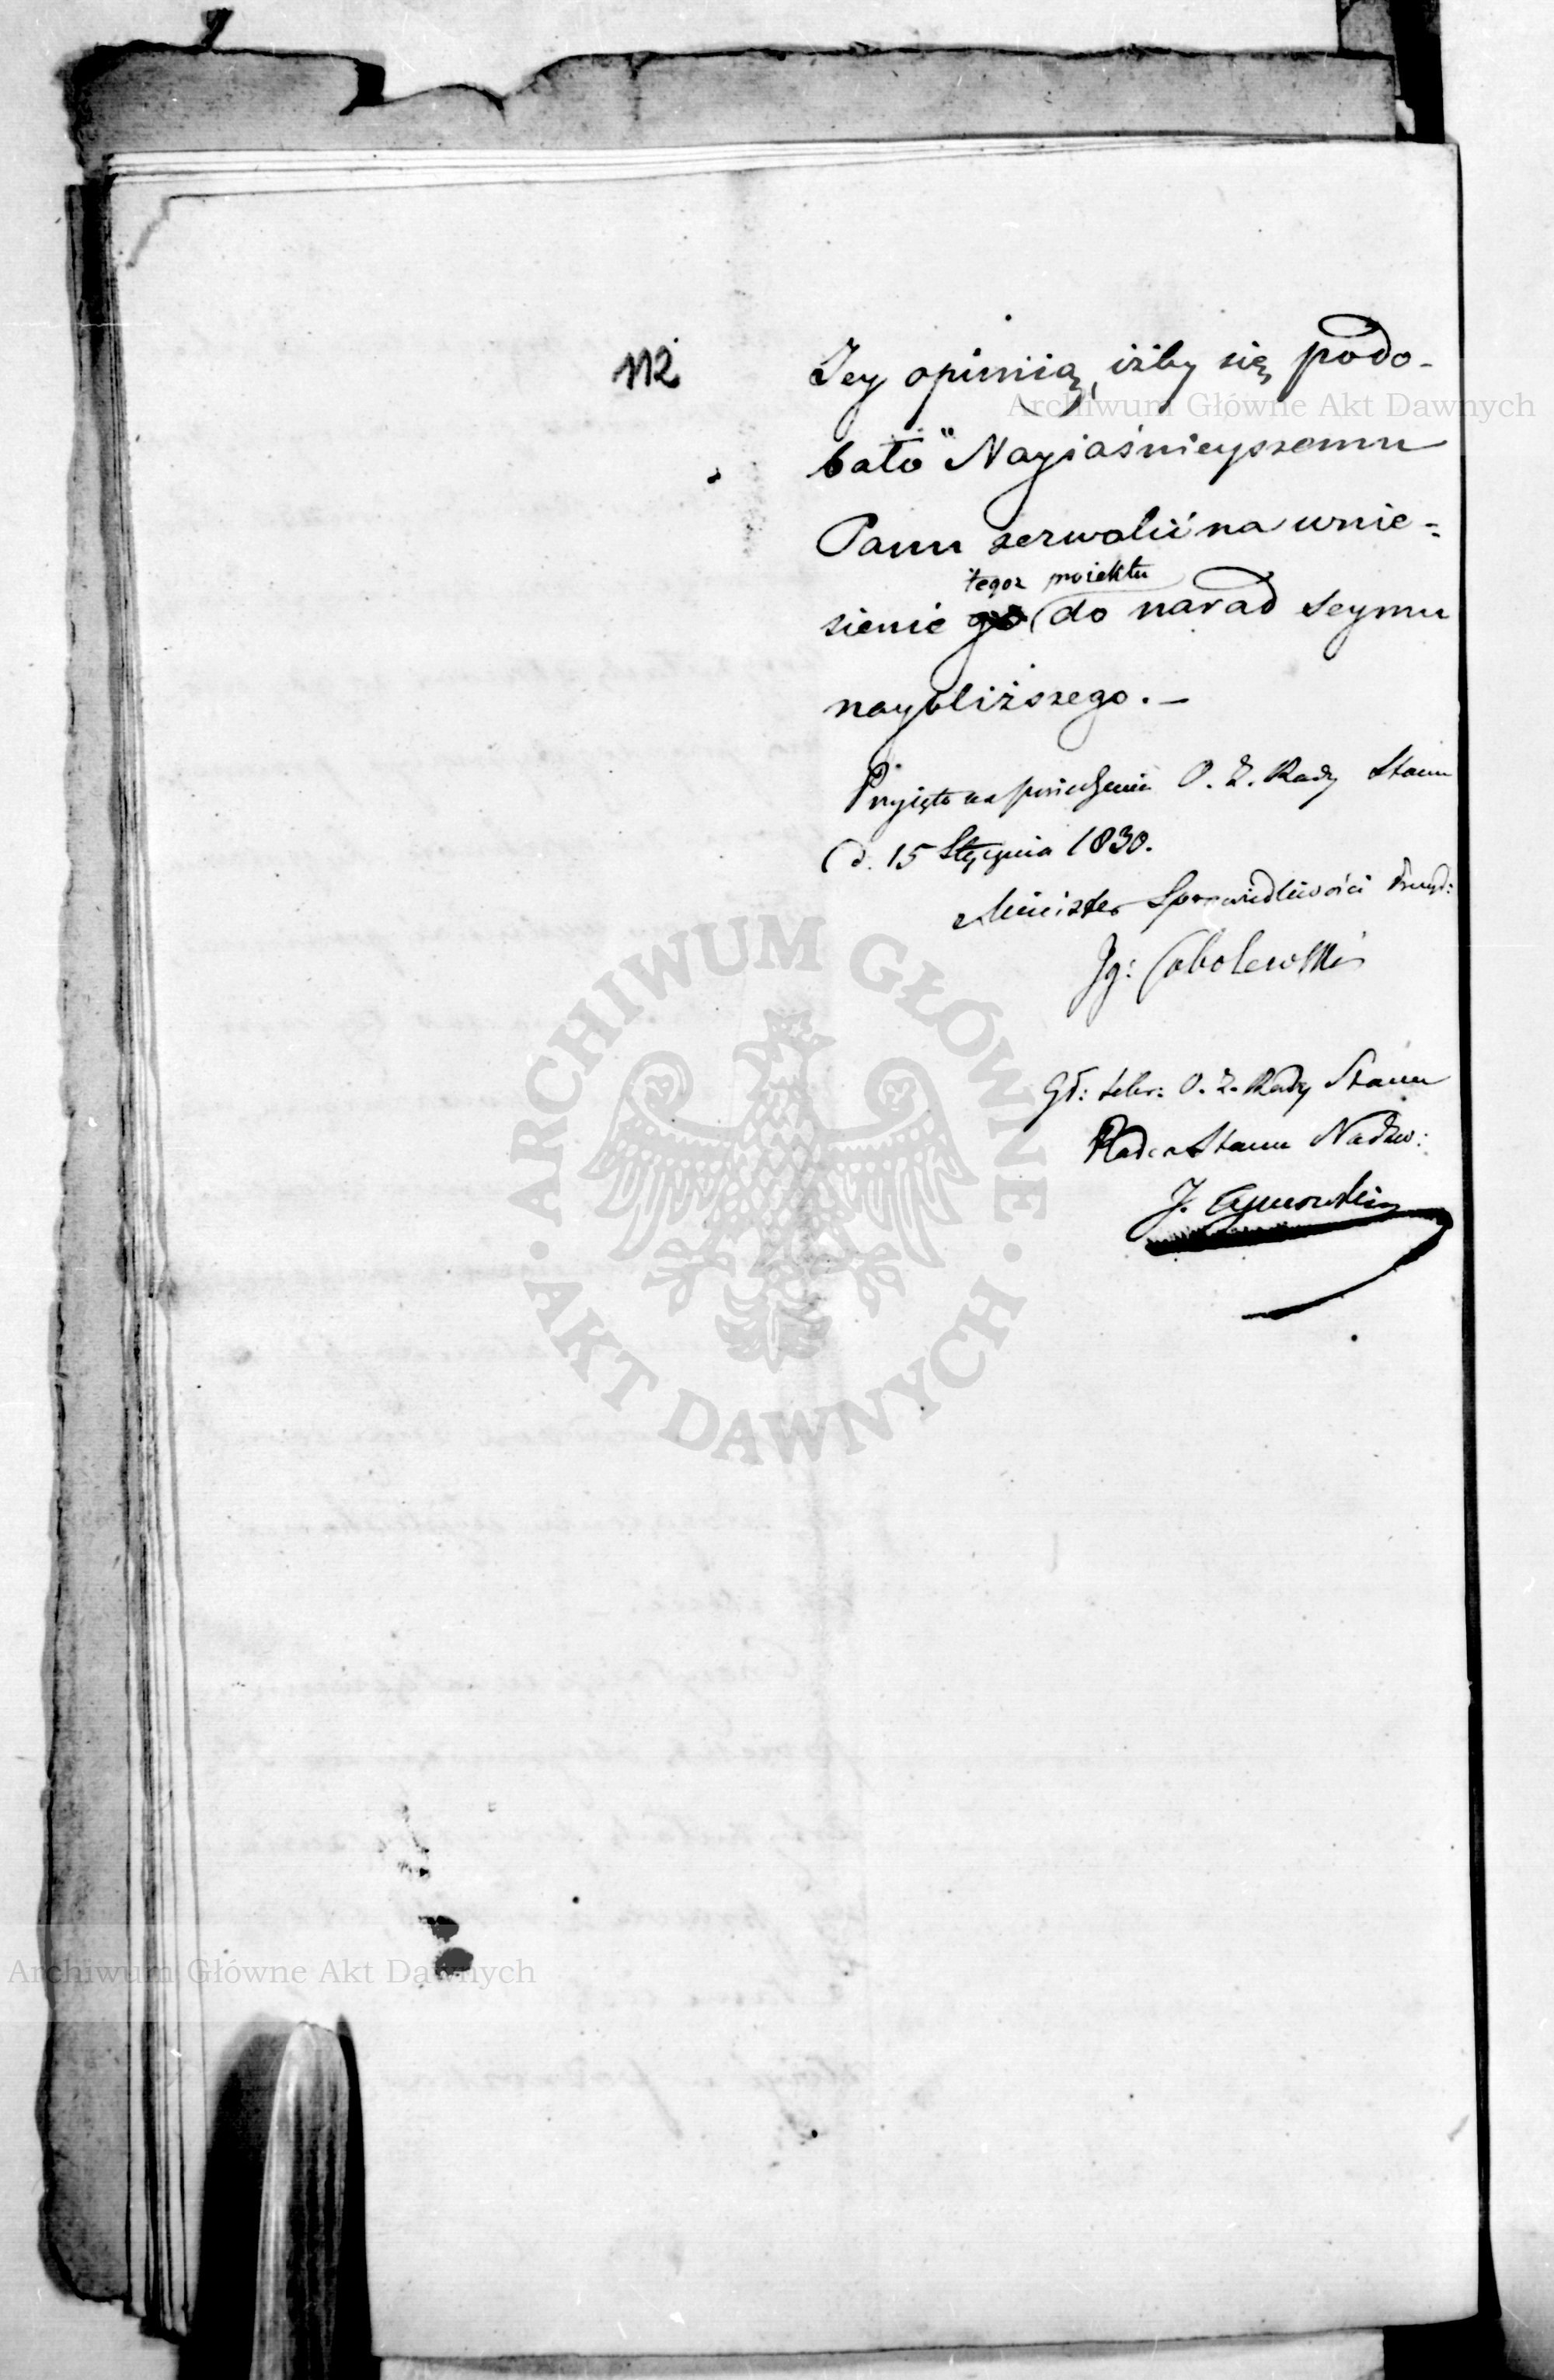 112
Jey opinią, iżby się podo-
bało Nayiaśnieyszemu
Panu zezwolić na wnie-
tegoż proiektu
sienie go do narad seymu
naybliższego. —
Przyięto na posiedzeniu O. Z. Rady Stanu
d. 15 Stycznia 1830.
Minister Sprawiedliwości Prezyd:
Ig: Sobolewski
Gł: Sekr: O. Z. Rady Stanu
Radca Stanu Nadzw:
J. Tymowski
Archiwum Główne Akt Dawnych
ARCHIWUM GŁÓWNE · AKT DAWNYCH ·
Archiwum Główne Akt Dawnych